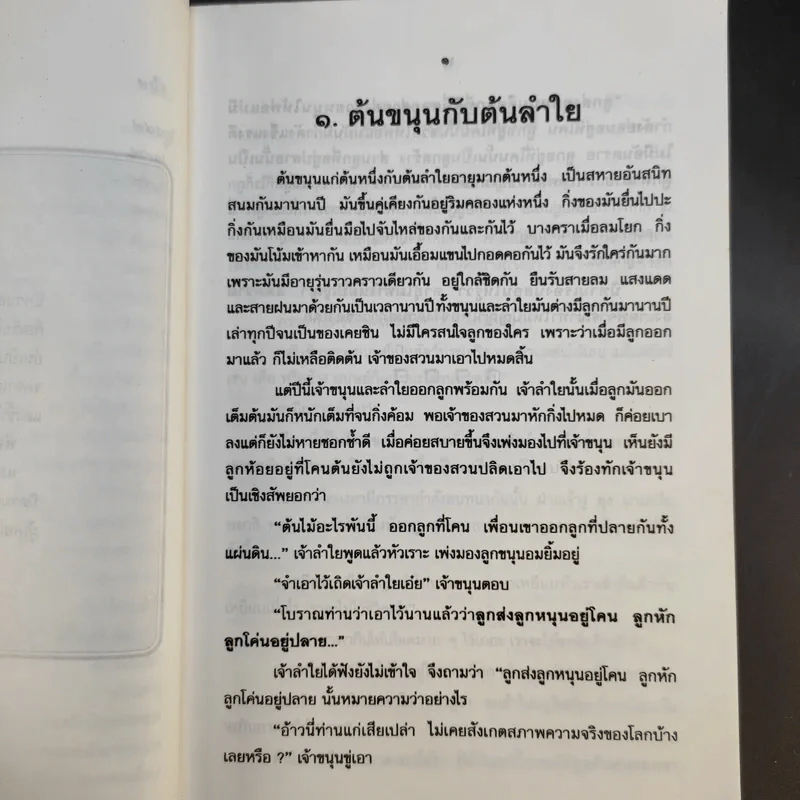 ๑
๑. ต้นขนุนกับต้นลำใย
ต้นขนุนแก่ต้นหนึ่งกับต้นลำใยอายุมากต้นหนึ่ง เป็นสหายอันสนิท
สนมกันมานานปี มันขึ้นคู่เคียงกันอยู่ริมคลองแห่งหนึ่ง กิ่งของมันยื่นไปปะ
กิ่งกันเหมือนมันยื่นมือไปจับไหล่ของกันและกันไว้ บางคราเมื่อลมโยก กิ่ง
ของมันโน้มเข้าหากัน เหมือนมันเอื้อมแขนไปกอดคอกันไว้ มันจึงรักใคร่กันมาก
เพราะมันมีอายุรุ่นราวคราวเดียวกัน อยู่ใกล้ชิดกัน ยืนรับสายลม แสงแดด
และสายฝนมาด้วยกันเป็นเวลานานปี ทั้งขนุนและลำใยมันต่างมีลูกกันมานานปี
เล่าทุกปีจนเป็นของเคยชิน ไม่มีใครสนใจลูกของใคร เพราะว่าเมื่อมีลูกออก
มาแล้ว ก็ไม่เหลือติดต้น เจ้าของสวนมาเอาไปหมดสิ้น
แต่ปีนี้เจ้าขนุนและลำใยออกลูกพร้อมกัน เจ้าลำใยนั้นเมื่อลูกมันออก
เต็มต้นมันก็หนักเต็มที่จนกิ่งค้อม พอเจ้าของสวนมาหักกิ่งไปหมด ก็ค่อยเบา
ลงแต่ก็ยังไม่หายชอกช้ำดี เมื่อค่อยสบายขึ้นจึงเพ่งมองไปที่เจ้าขนุน เห็นยังมี
ลูกห้อยอยู่ที่โคนต้นยังไม่ถูกเจ้าของสวนปลิดเอาไป จึงร้องทักเจ้าขนุน
เป็นเชิงสัพยอกว่า
“ต้นไม้อะไรพันนี้ ออกลูกที่โคน เพื่อนเขาออกลูกที่ปลายกันทั้ง
แผ่นดิน...” เจ้าลำใยพูดแล้วหัวเราะ เพ่งมองลูกขนุนอมยิ้มอยู่
“จำเอาไว้เถิดเจ้าลำใยเอ๋ย” เจ้าขนุนตอบ
“โบราณท่านว่าเอาไว้นานแล้วว่าลูกส่งลูกหนุนอยู่โคน ลูกหัก
ลูกโค่นอยู่ปลาย...”
เจ้าลำใยได้ฟังยังไม่เข้าใจ จึงถามว่า “ลูกส่งลูกหนุนอยู่โคน ลูกหัก
ลูกโค่นอยู่ปลาย นั้นหมายความว่าอย่างไร
“อ้าวนี่ท่านแก่เสียเปล่า ไม่เคยสังเกตสภาพความจริงของโลกบ้าง
เลยหรือ ?” เจ้าขนุนขู่เอา